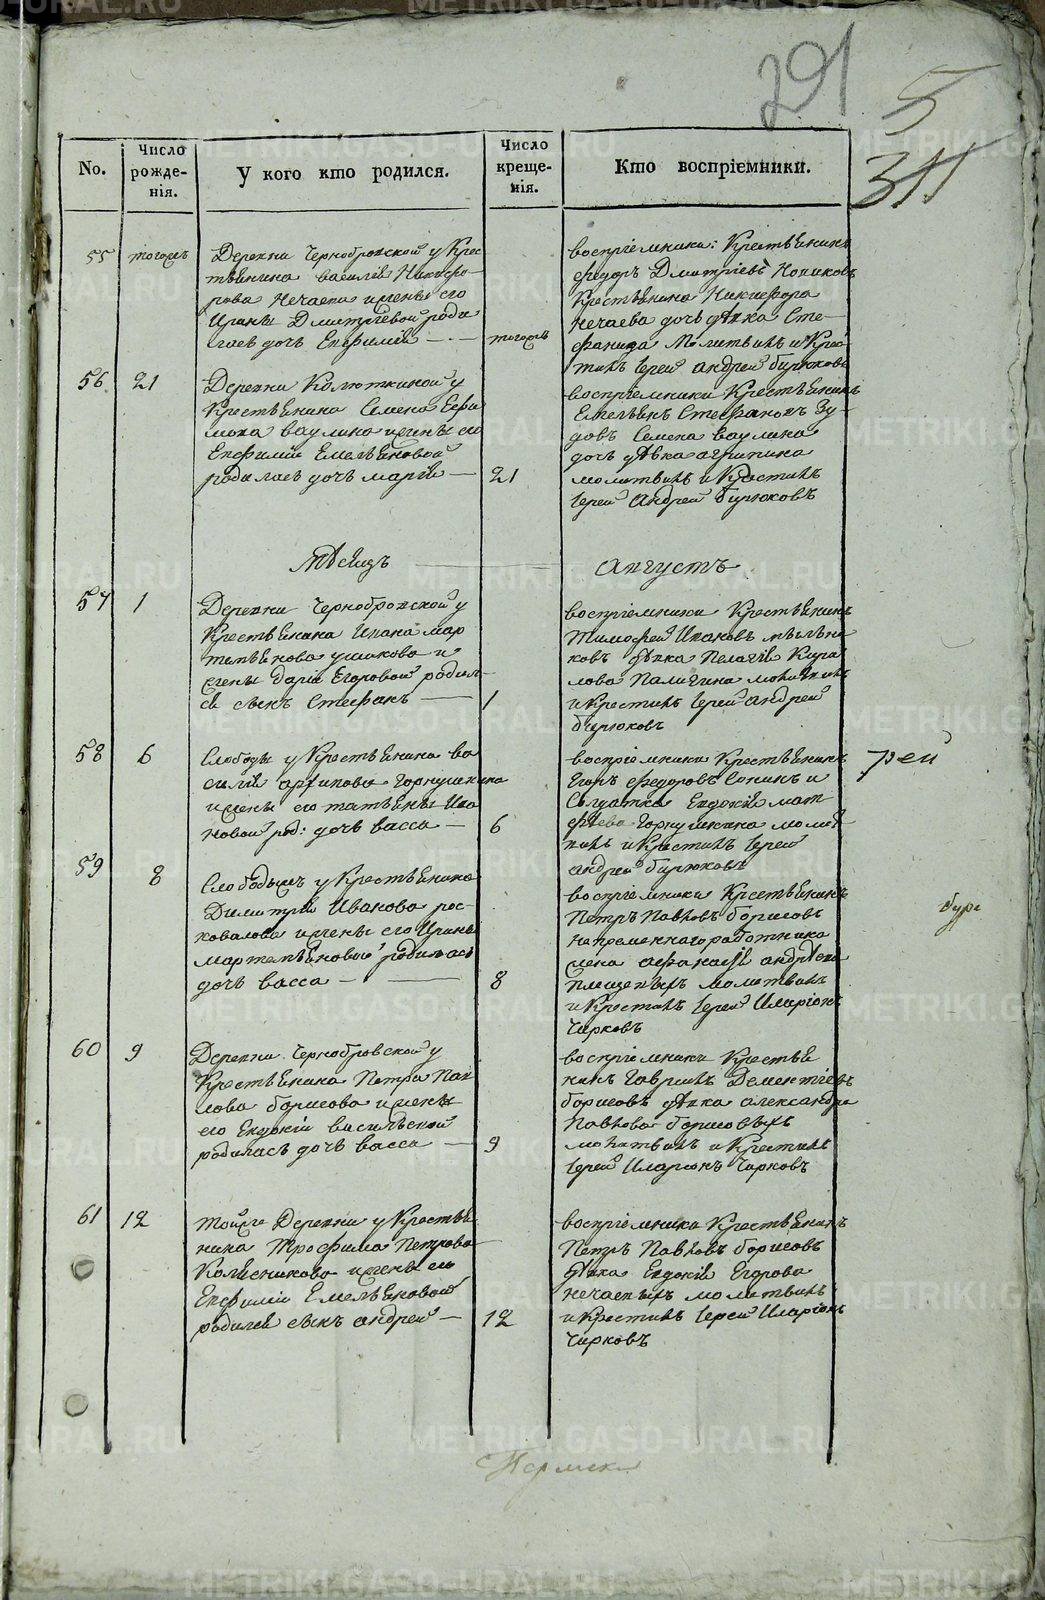 291
5
311
No.
Число рожде-нія.
У кого кто родился.
Число креще-нія.
Кто воспріемники.
55
тогожъ
Деревни Чернобровской у Крес
тьянина василія Никифо-
рова Нечаева ижены его
Ирины Дмитріевой роди
лась дочь Евфимія
тогожъ
воспріемники: Крестьянинъ
федоръ Дмитріевъ Новиковъ
Крестьянина Никифора
Нечаева дочь дѣвка Сте-
фанида Молитвилъ и Крес-
тилъ Іерей андрей бирюковъ
56
21
Деревни Колюткиной у
Крестьянина Семена Ефи
мова ваулина ижены его
Евфиміи Емельяновой
родилась дочь марія
21
воспріемники Крестьянинъ
Емельянъ Стефановъ Зу-
довъ Семена ваулина
дочь дѣвка агрипина
молитвилъ и Крестилъ
Іерей андрей бирюковъ
Мѣсяцъ
августъ
57
1
Деревни Чернобровской у
Крестьянина Ивана мар
темьянова ушакова и
жены Даріи Егоровой родил-
ся сынъ Стефанъ
1
воспріемники Крестьянинъ
Тимофей Ивановъ мыльни
ковъ дѣвка Пелагія Кири
лова Паличина молитвилъ
и Крестилъ Іерей андрей
бирюковъ
58
6
Слободы у Крестьянина ва
силія архипова Горкушкина
ижены его татьяны Ива
новой род: дочь васса
6
воспріемники Крестьянинъ
Егоръ федоровъ Сонинъ и
Солдатка Евдокія мат
фѣева Горкушкина молит
вилъ и Крестилъ Іерей
андрей бирюковъ
рей
59
8
Слободыжъ у Крестьянина
Димитрія Иванова рос-
ковалова ижены его Ирины
мартемьяновой родилась
дочь васса
8
воспріемники Крестьянинъ
Петръ Павловъ борисовъ
непременнаго работника
жена афанасія андрѣева
молитвилъ
и Крестилъ Іерей Иларіонъ
Чирковъ
бурс
60
9
Деревни Чернобровской у
Крестьянина Петра Пав
лова борисова ижены
его Евдокіи васильевой
родилась дочь васса
9
воспріемники Крестья
нинъ Гаврилъ Дементіевъ
борисовъ дѣвка александра
Павлова борисовыхъ
молитвилъ и Крестилъ
Іерей Иларіонъ Чирковъ
61
12
тойже Деревни у Крестья
нина трофима Петрова
Колесникова ижены его
Евфиміи Емельяновой
родился сынъ андрей
12
воспріемники Крестьянинъ
Петръ Павловъ борисовъ
дѣвка Евдокія Егорова
нечаевыхъ молитвилъ
и Крестилъ Іерей Иларіонъ
Чирковъ
METRIKI.GASO-URAL.RU